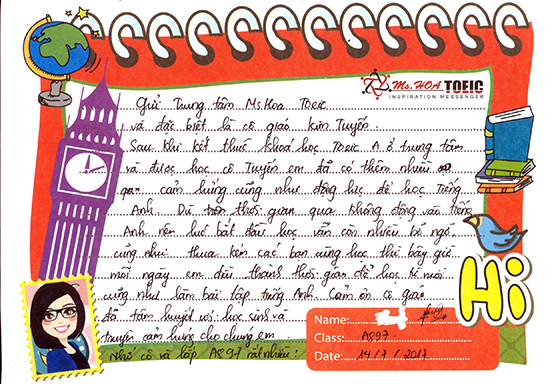 Ms. HOA TOEIC
INSPIRATION MESSENGER
Gửi Trung tâm Ms Hoa Toeic
và đặc biệt là cô giáo Kim Tuyến
Sau khi kết thúc khoá học Toeic A ở trung tâm
và được học cô Tuyến em đã có thêm nhiều
cảm hứng cũng như động lực để học Tiếng
Anh. Dù thời gian qua không động vào Tiếng
Anh nên lúc bắt đầu học vẫn còn nhiều bỡ ngỡ
cũng như thua kém các bạn cùng học thì bây giờ
mỗi ngày em đều thời gian để học từ mới
cũng như làm bài tập tiếng Anh. Cảm ơn cô giáo
đã tâm huyết với học sinh và
truyền cảm hứng cho chúng em
Nhớ cô và lớp A897 rất nhiều!
Hi
Name:
Class: A897
Date: 14/7/2017